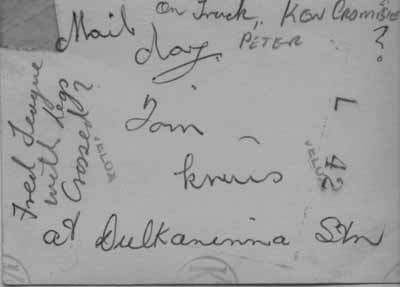 On Truck, Ken Cromie
Mail PETER ?
day.
Tom
Kruis
at Dulkaninna Stn
Fred Teague
with legs
Crossed?
L 42
VELOX
VELOX